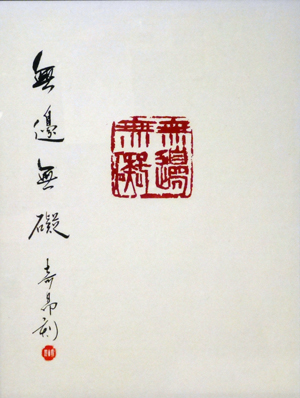 無邊無礙
無邊無礙 壽昂刻